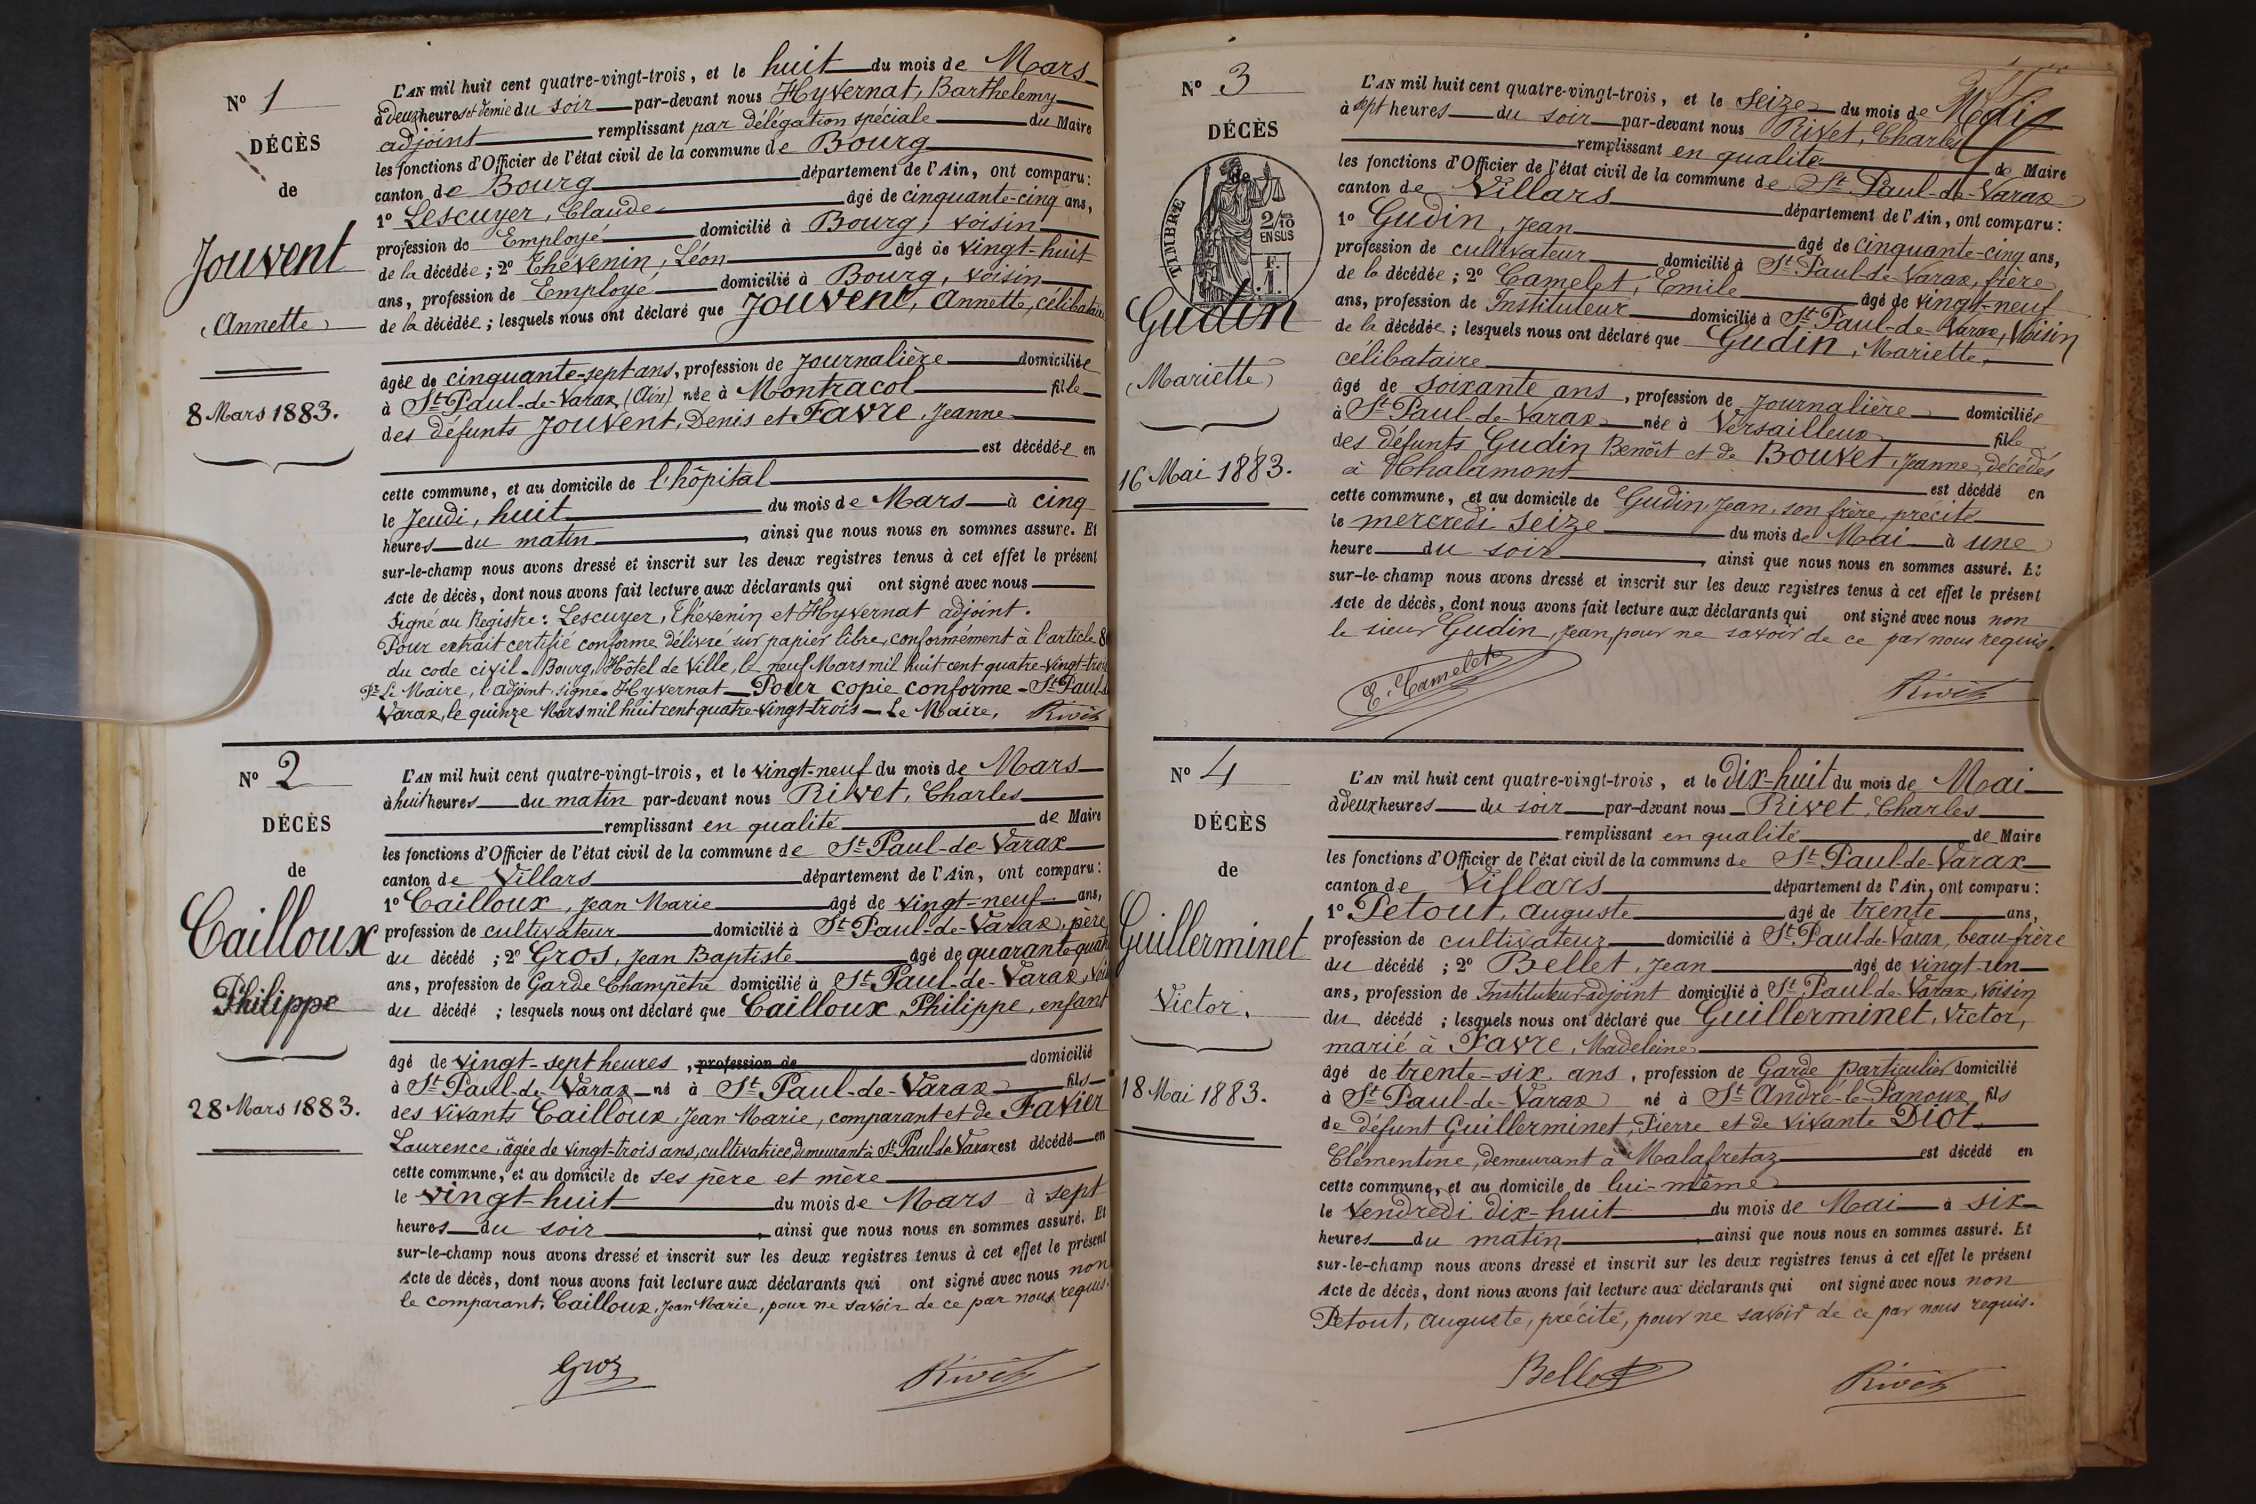 N° 1
DÉCÈS
de
Jouvent
Annette
8 Mars 1883.
L'AN mil huit cent quatre-vingt-trois, et le huit du mois de Mars
à deux heures et demie du soir par-devant nous Hyvernat, Barthelemy
adjoint remplissant par délégation spéciale du Maire
les fonctions d'Officier de l'état civil de la commune de Bourg
canton de Bourg département de l'Ain, ont comparu:
1° Lescuyer, Claude âgé de cinquante-cinq ans,
profession de Employé domicilié à Bourg, voisin
de la décédée; 2° Thévenin, Léon âgé de vingt-huit
ans, profession de Employé domicilié à Bourg, voisin
de la décédée; lesquels nous ont déclaré que Jouvent, Annette, célibataire
âgée de cinquante-sept ans, profession de journalière domiciliée
à St Paul-de-Varax (Ain) née à Montracol fille
des défunts Jouvent, Denis et Favre, Jeanne
est décédée en
cette commune, et au domicile de l'hôpital
le Jeudi, huit du mois de Mars à cinq
heures du matin, ainsi que nous nous en sommes assuré. Et
sur-le-champ nous avons dressé et inscrit sur les deux registres tenus à cet effet le présent
Acte de décès, dont nous avons fait lecture aux déclarants qui ont signé avec nous
Signé au Registre: Lescuyer, Thévenin et Hyvernat adjoint.
Pour extrait certifié conforme délivré sur papier libre, conformément à l'article 80
du code civil. Bourg, Hôtel de Ville, le neuf Mars mil huit cent quatre-vingt-trois
Pr Le Maire, l'adjoint signé Hyvernat Pour copie conforme St Paul-de-
Varax, le quinze Mars mil huit cent quatre-vingt-trois Le Maire, Rivet
N° 2
DÉCÈS
de
Cailloux
Philippe
28 Mars 1883.
L'AN mil huit cent quatre-vingt-trois, et le vingt-neuf du mois de Mars
à huit heures du matin par-devant nous Rivet, Charles
remplissant en qualité de Maire
les fonctions d'Officier de l'état civil de la commune de St Paul-de-Varax
canton de Villars département de l'Ain, ont comparu:
1° Cailloux, Jean Marie âgé de vingt-neuf ans,
profession de cultivateur domicilié à St Paul-de-Varax, père
du décédé; 2° Gros, Jean Baptiste âgé de quarante-quatre
ans, profession de Garde Champêtre domicilié à St Paul-de-Varax, voisin
du décédé; lesquels nous ont déclaré que Cailloux Philippe, enfant
âgé de vingt-sept heures, profession de domicilié
à St Paul-de-Varax né à St Paul-de-Varax fils
des vivants Cailloux, Jean Marie, comparant et de Favier
Laurence, âgée de vingt-trois ans, cultivatrice, demeurant à St Paul de Varax est décédé en
cette commune, et au domicile de ses père et mère
le vingt-huit du mois de Mars à sept
heures du soir, ainsi que nous nous en sommes assuré. Et
sur-le-champ nous avons dressé et inscrit sur les deux registres tenus à cet effet le présent
Acte de décès, dont nous avons fait lecture aux déclarants qui ont signé avec nous non
le comparant, Cailloux, Jean Marie, pour ne savoir de ce par nous requis.
Gros Rivet
N° 3
DÉCÈS
de
TIMBRE
2/10
EN SUS
Gudin
Mariette
16 Mai 1883.
L'AN mil huit cent quatre-vingt-trois, et le seize du mois de Mai
à sept heures du soir par-devant nous Rivet, Charles
remplissant en qualité de Maire
les fonctions d'Officier de l'état civil de la commune de St Paul-de-Varax
canton de Villars département de l'Ain, ont comparu:
1° Gudin, Jean âgé de cinquante-cinq ans,
profession de cultivateur domicilié à St Paul-de-Varax, frère
de la décédée; 2° Camelet, Emile âgé de vingt-neuf
ans, profession de Instituteur domicilié à St Paul-de-Varax, voisin
de la décédée; lesquels nous ont déclaré que Gudin, Mariette,
célibataire
âgé de soixante ans, profession de journalière domiciliée
à St Paul-de-Varax née à Versailleux fille
des défunts Gudin Benoît et de Bouvet, Jeanne, décédés
à Chalamont est décédé en
cette commune, et au domicile de Gudin, Jean, son frère, précité
le mercredi seize du mois de Mai à une
heure du soir, ainsi que nous nous en sommes assuré. Et
sur-le-champ nous avons dressé et inscrit sur les deux registres tenus à cet effet le présent
Acte de décès, dont nous avons fait lecture aux déclarants qui ont signé avec nous non
le sieur Gudin, Jean, pour ne savoir de ce par nous requis.
E. Camelet Rivet
N° 4
DÉCÈS
de
Guillerminet
Victor.
18 Mai 1883.
L'AN mil huit cent quatre-vingt-trois, et le dix-huit du mois de Mai
à deux heures du soir par-devant nous Rivet, Charles
remplissant en qualité de Maire
les fonctions d'Officier de l'état civil de la commune de St Paul-de-Varax
canton de Villars département de l'Ain, ont comparu:
1° Petout, Auguste âgé de trente ans,
profession de cultivateur domicilié à St Paul-de-Varax, beau-frère
du décédé; 2° Bellet, Jean âgé de vingt-un
ans, profession de Instituteur-adjoint domicilié à St Paul-de-Varax, voisin
du décédé; lesquels nous ont déclaré que Guillerminet, Victor,
marié à Favre, Madeleine
âgé de trente-six ans, profession de Garde particulier domicilié
à St Paul-de-Varax né à St André-le-Panoux fils
de défunt Guillerminet, Pierre et de vivante Diot,
Clémentine, demeurant à Malafretaz est décédé en
cette commune, et au domicile de lui-même
le vendredi dix-huit du mois de Mai à six
heures du matin, ainsi que nous nous en sommes assuré. Et
sur-le-champ nous avons dressé et inscrit sur les deux registres tenus à cet effet le présent
Acte de décès, dont nous avons fait lecture aux déclarants qui ont signé avec nous non
Petout, Auguste, précité, pour ne savoir de ce par nous requis.
Bellet Rivet